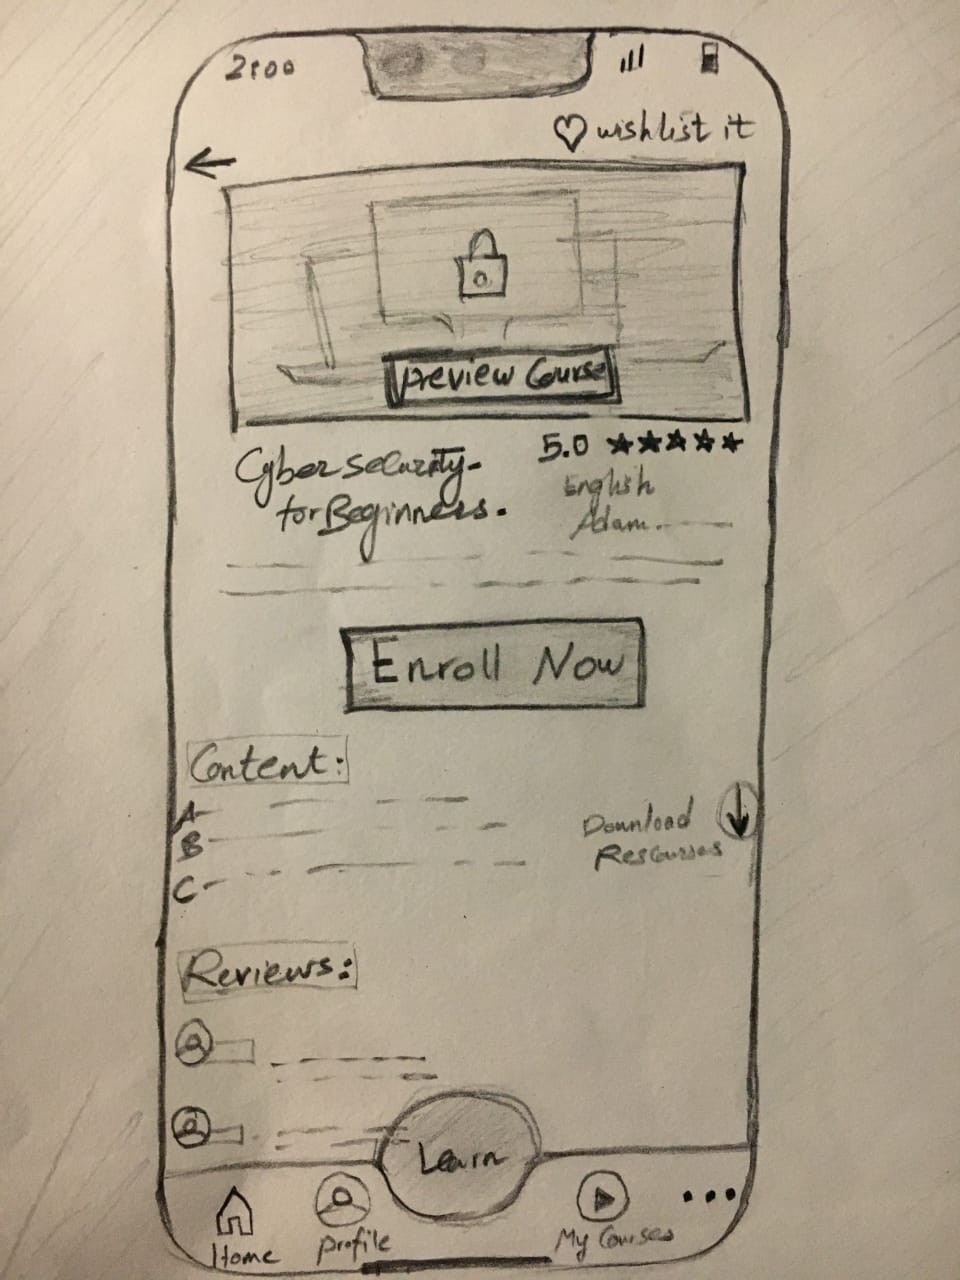 2:00
wishlist it
Preview Course
Cyber security-
for Beginners.
5.0
English
Adam.
Enroll Now
Content:
A-
B-
C-
Download
Rescourses
Reviews:
Learn
Home
Profile
My Courses
...